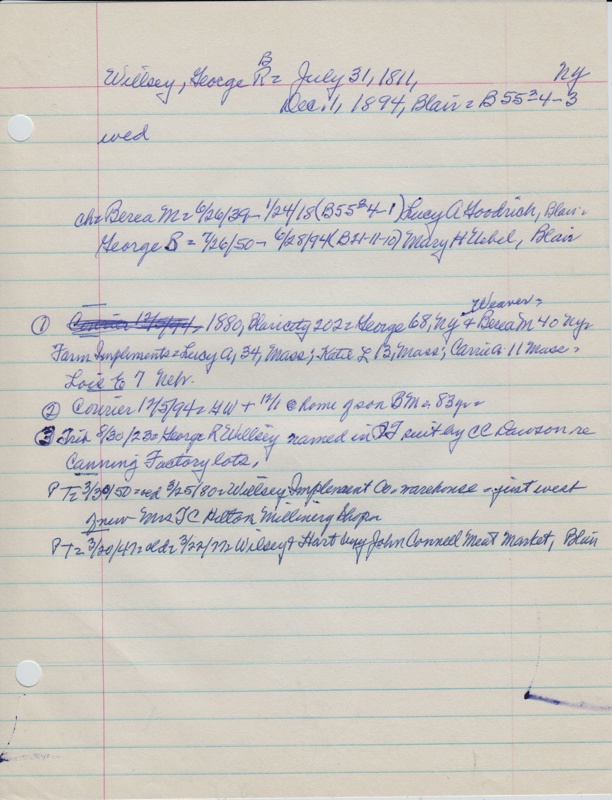 B
Willsey, George R = July 31, 1811, Ny
Dec. 1, 1894, Blair = B 55 2 4-3
wed
ch = Berea M = 6/26/39 - 1/24/18 (B55 2 4-1) Lucy A Goodrich, Blair.
George S = 7/26/50 - 6/28/94 (B21-11-10) Mary H Uebel, Blair
Weaver =
① 1880, Blair city 202 = George 68, Ny + Berea M 40 Ny =
Farm Implements = Lucy A, 34, Mass; Katie L 13, Mass; Carrie A 11 Mass =
Lois to 7 Nebr.
② Courier 12/5/94 = GW + 12/1 @ home of son BM = 83 yrs
③ Trib 8/30/23 = George R Willsey named in suit by CC Dawson re
Canning Factory lots,
PT = 3/30/50 = 3/25/80 = Willsey Implement Co. warehouse = just west
of new Mrs TC Hilton Millinery Shop =
PT = 3/20/47 = old = 3/22/77 = Wilsey + Hart buy John Connell Meat Market, Blair